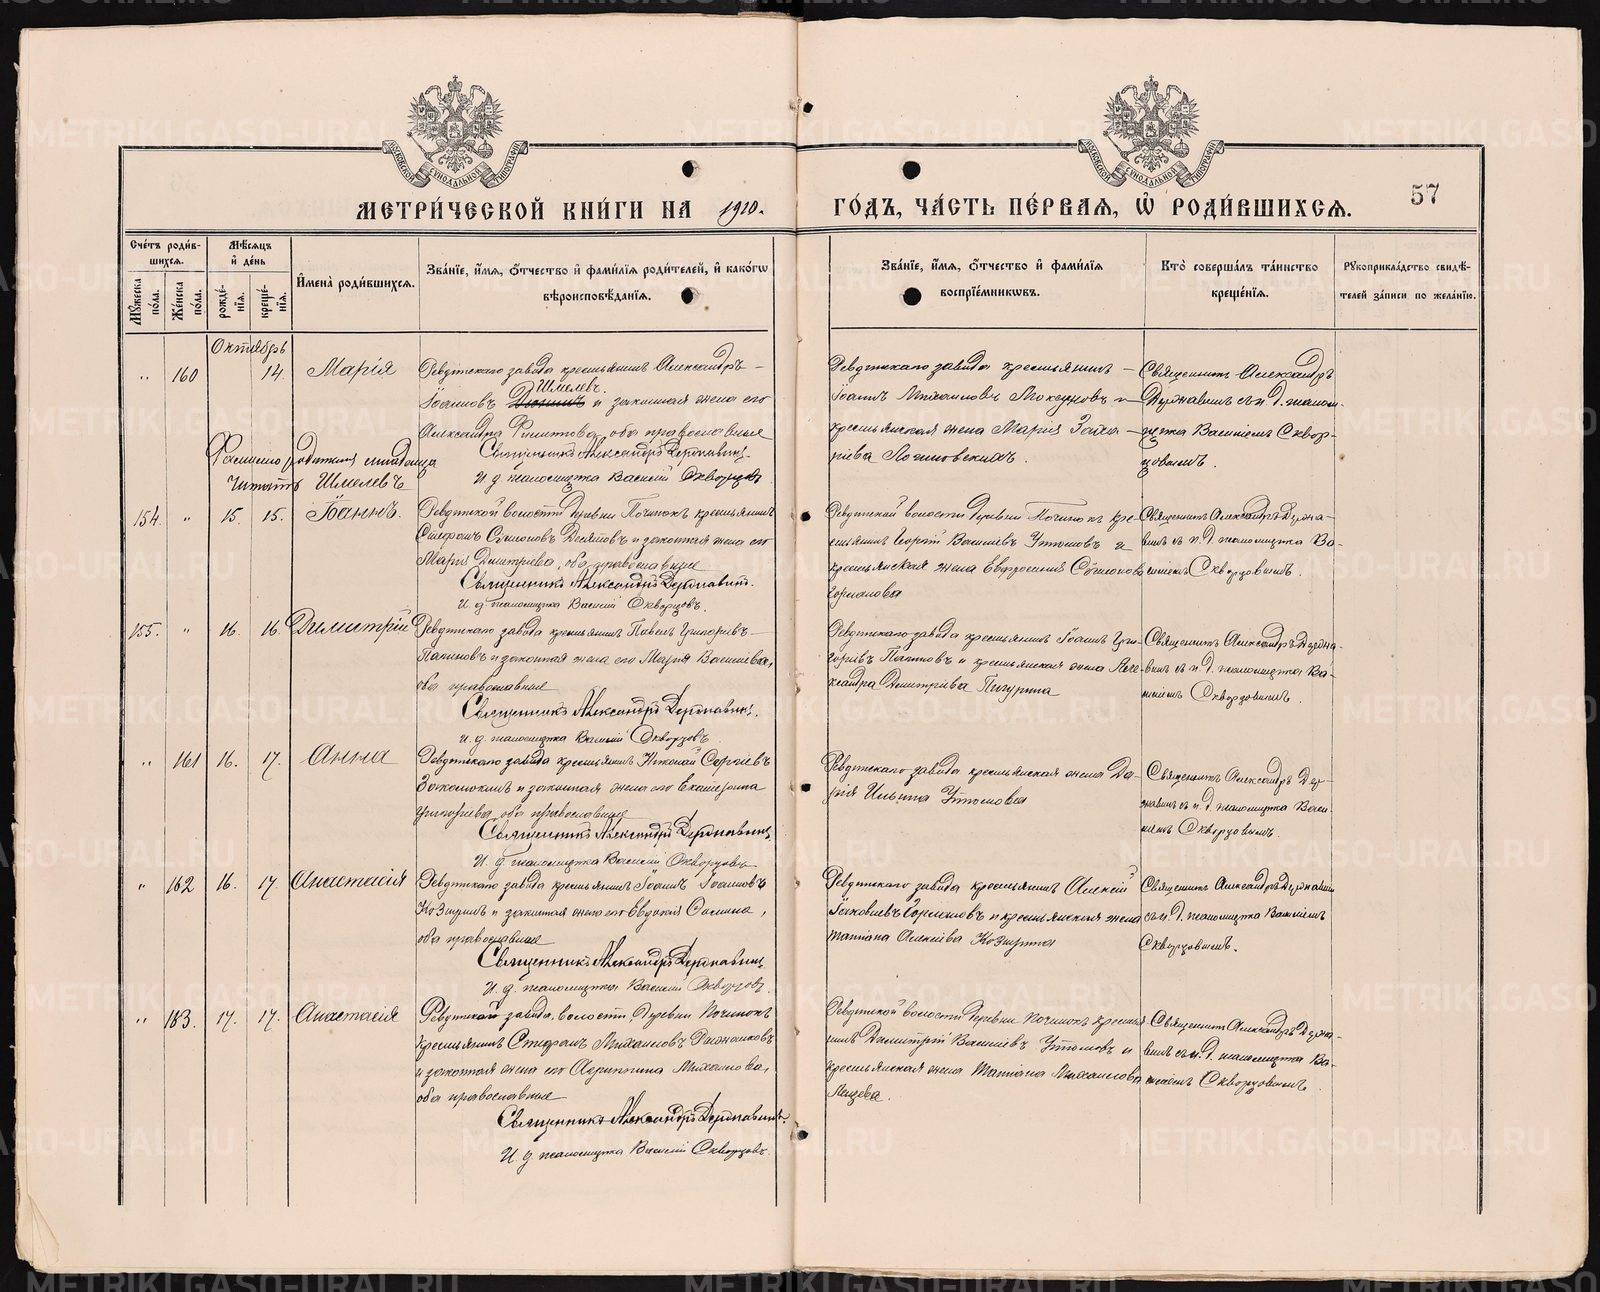 МЕТРИ́ЧЕСКОЙ КНИ́ГИ НА 1910.
ГО́ДЪ, ЧА́СТЬ ПЕ́РВАЯ, Ѡ РОДИ́ВШИХСЯ.
57
Сче́тъ роди́вшихся.
Мꙋ́жеска по́ла.
Же́нска по́ла.
Мѣ́сяцъ и҆ де́нь
рожде́нїя.
креще́нїя.
И҆мена̀ роди́вшихся.
Зва́нїе, и҆́мя, ѻ҆́тчество и҆ фами́лїя роди́телей, и҆ како́гѡ
вѣроисповѣ́данїя.
Зва́нїе, и҆́мя, ѻ҆́тчество и҆ фами́лїя
воспрїе́мникѡвъ.
Кто̀ соверша́лъ та́инство
креще́нїя.
Рꙋкоприкла́дство свидѣ́-
телей за́писи по жела́нїю.
Октябрь
" 160 14. Марія
Ревдинскаго завода крестьянинъ Александръ
Шмелевъ.
Іоанновъ и законная жена его
Александра Филиппова, оба православные
Священникъ Александръ Державинъ.
И. д. псаломщика Василій Скворцовъ
Фамилію родителя младенца
читать Шмелевъ
Ревдинскаго завода крестьянинъ
Іоаннъ Михаиловъ и
крестьянская жена Марія
Священникъ Александръ
Державинъ съ и. д. псалом-
щика Василіемъ Сквор-
цовымъ.
154. " 15. 15. Іоаннъ.
Ревдинской волости деревни Починокъ крестьянинъ
Стефанъ и законная жена его
Марія Димитріева, оба православные
Священникъ Александръ Державинъ.
И. д. псаломщика Василій Скворцовъ.
Ревдинской волости деревни Починокъ кре-
стьянинъ Георгій Васильевъ Утюмовъ и
крестьянская жена Евфросинія
Священникъ Александръ Держа-
винъ съ и. д. псаломщика Ва-
силіемъ Скворцовымъ.
155. " 16. 16. Димитрій
Ревдинскаго завода крестьянинъ Павелъ Григорьевъ
и законная жена его Марія Васильева,
оба православные
Священникъ Александръ Державинъ.
и. д. псаломщика Василій Скворцовъ.
Ревдинскаго завода крестьянинъ Іоаннъ Гри-
горьевъ и крестьянская жена Алек-
сандра Димитріева Пигурина
Священникъ Александръ Держа-
винъ съ и. д. псаломщика Ва-
силіемъ Скворцовымъ.
" 161 16. 17. Анна
Ревдинскаго завода крестьянинъ Николай Сергіевъ
и законная жена его Екатерина
Григорьева, оба православные
Священникъ Александръ Державинъ
И. д. псаломщика Василій Скворцовъ
Ревдинскаго завода крестьянская жена Да-
рія Ильина Утюмова
Священникъ Александръ Дер-
жавинъ съ и. д. псаломщика Васи-
ліемъ Скворцовымъ.
" 162 16. 17. Анастасія
Ревдинскаго завода крестьянинъ Іоаннъ Іоанновъ
Козыринъ и законная жена его Евдокія
оба православные
Священникъ Александръ Державинъ
И. д. псаломщика Василій Скворцовъ.
Ревдинскаго завода крестьянинъ Алексій
Іаковлевъ и крестьянская жена
Татіана Алексіева Козырина
Священникъ Александръ Державинъ
съ и. д. псаломщика Василіемъ
Скворцовымъ.
" 163. 17. 17. Анастасія
Ревдинской завода, волости, деревни Починокъ
крестьянинъ Стефанъ Михаиловъ
и законная жена его Агриппина Михаилова,
оба православные
Священникъ Александръ Державинъ.
И. д. псаломщика Василій Скворцовъ.
Ревдинской волости деревни Починокъ крестья-
нинъ Димитрій Васильевъ Утюмовъ и
крестьянская жена Татіана Михаилова
Священникъ Александръ Держа-
винъ съ и. д. псаломщика Ва-
силіемъ Скворцовымъ.
METRIKI.GASO-URAL.RU